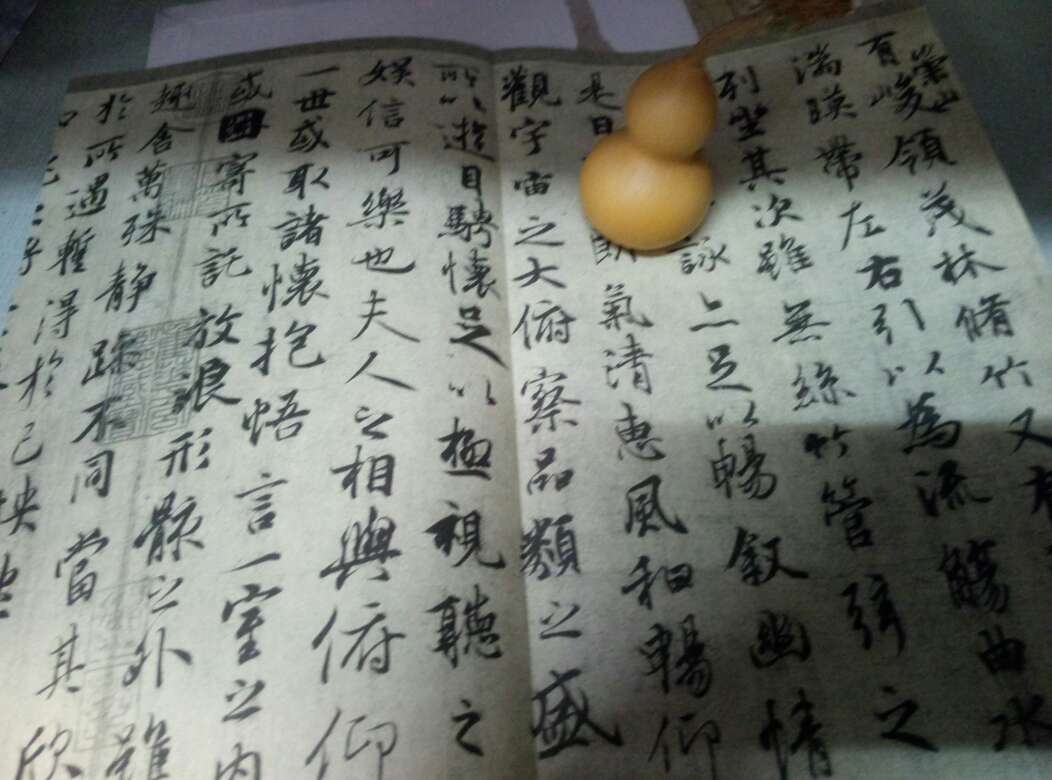 有崇山峻領茂林脩竹又有
湍暎帶左右引以為流觴曲水
列坐其次雖無絲竹管弦之
詠亦足以暢敘幽情
是日朗氣清惠風和暢仰
觀宇宙之大俯察品類之盛
所以遊目騁懷足以極視聽之
娛信可樂也夫人之相與俯仰
一世或取諸懷抱悟言一室之內
或因寄所託放浪形骸之外雖
趣舍萬殊靜躁不同當其欣
於所遇暫得於己怏然